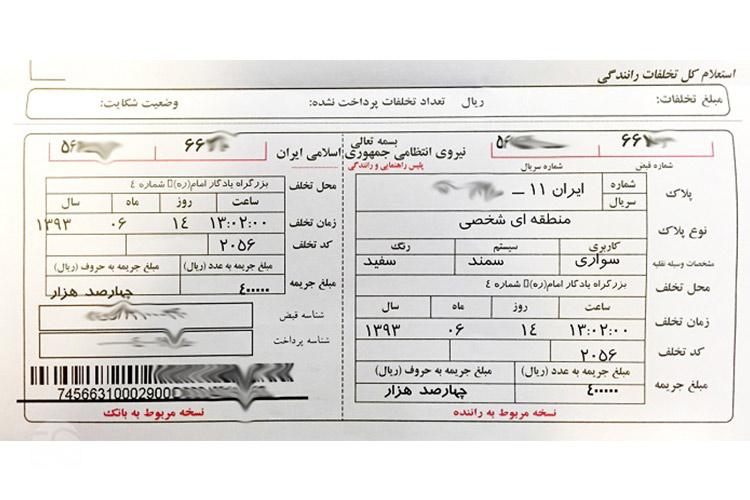 استعلام کل تخلفات رانندگی
مبلغ تخلفات: ریال تعداد تخلفات پرداخت نشده: وضعیت شکایت:
بسمه تعالی
نیروی انتظامی جمهوری اسلامی ایران
پلیس راهنمایی و رانندگی
۶۶
شماره قبض
۵۶
شماره سریال
پلاک
شماره
سریال
ایران ۱۱ ــ
نوع پلاک
منطقه ای شخصی
مشخصات وسیله نقلیه
کاربری سیستم رنگ
سواری سمند سفید
محل تخلف
بزرگراه یادگار امام(ره)▯ شماره ٤
زمان تخلف
ساعت روز ماه سال
۱۳:۰۲:۰۰ ۱۴ ۰۶ ۱۳۹۳
کد تخلف
۲۰۵۶
مبلغ جریمه
مبلغ جریمه به عدد (ریال) مبلغ جریمه به حروف (ریال)
۴۰۰۰۰۰ چهارصد هزار
نسخه مربوط به راننده
۶۶
۵۶
محل تخلف
بزرگراه یادگار امام(ره)▯ شماره ٤
زمان تخلف
ساعت روز ماه سال
۱۳:۰۲:۰۰ ۱۴ ۰۶ ۱۳۹۳
کد تخلف
۲۰۵۶
مبلغ جریمه
مبلغ جریمه به عدد (ریال) مبلغ جریمه به حروف (ریال)
۴۰۰۰۰۰ چهارصد هزار
شناسه قبض
شناسه پرداخت
74566310002900
نسخه مربوط به بانک